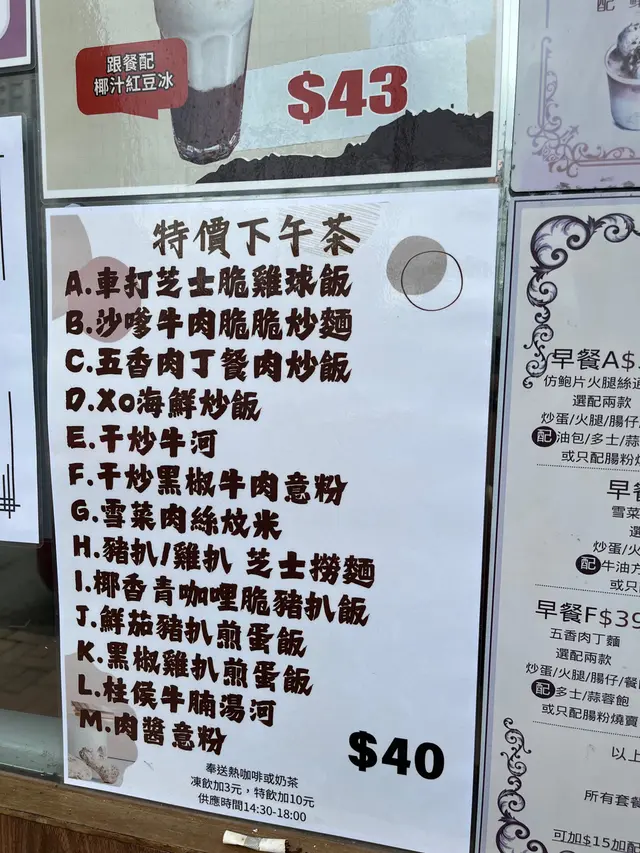 跟餐配
椰汁紅豆冰
$43
特價下午茶
A.車打芝士脆雞球飯
B.沙嗲牛肉脆脆炒麵
C.五香肉丁餐肉炒飯
D.XO海鮮炒飯
E.干炒牛河
F.干炒黑椒牛肉意粉
G.雪菜肉絲炆米
H.豬扒/雞扒 芝士撈麵
I.椰香青咖哩脆豬扒飯
J.鮮茄豬扒煎蛋飯
K.黑椒雞扒煎蛋飯
L.柱侯牛腩湯河
M.肉醬意粉
$40
奉送熱咖啡或奶茶
凍飲加3元，特飲加10元
供應時間14:30-18:00
配
早餐A$
仿鮑片火腿絲通
選配兩款
炒蛋/火腿/腸仔
配 油包/多士/蒜
或只配腸粉
早
雪菜
炒蛋/火
配 牛油方
或只
早餐F$39
五香肉丁麵
選配兩款
炒蛋/火腿/腸仔/餐
配 多士/蒜蓉飽
或只配腸粉燒賣
以上
所有套餐
可加$15加配